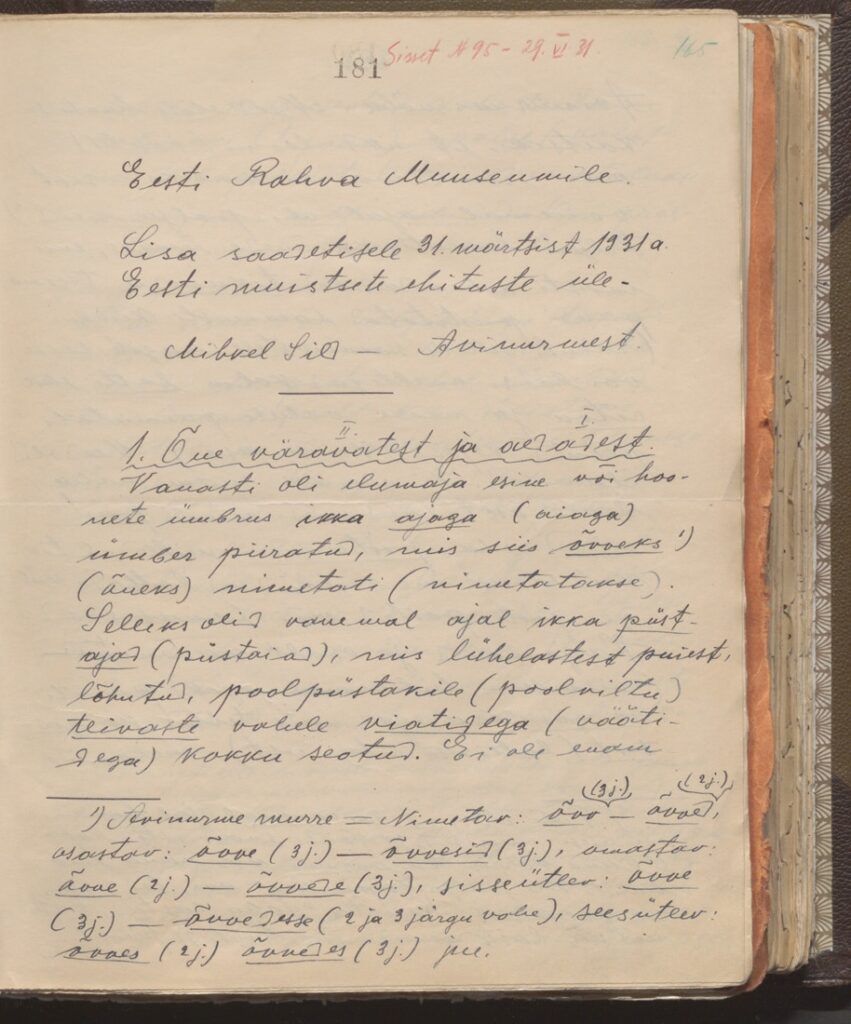 181 Sisset N 95 - 29. VI 31. 165
Eesti Rahva Muuseumile.
Lisa saadetisele 31. märtsist 1931 a.
Eesti muistsete ehituste üle -
Mihkel Sild — Avinurmest.
II. I.
1. Õue väravatest ja aedadest.
Vanasti oli elumaja esine või hoo-
nete ümbrus ikka ajaga (aiaga)
ümber piiratud, mis siis õvveks ¹)
(õueks) nimetati (nimetatakse).
Selleks olid vanemal ajal ikka püst-
ajad (püstaiad), mis lühelastest puiest,
lõhutud, poolpüstakile (poolviltu)
teivaste vahele viatidega (vääti-
dega) kokku seotud. Ei ole enam
(3j.) (2j.)
¹) Avinurme murre = Nimetav: õvv — õvved,
osastav: õvve (3j.) — õvvesid (3j.), omastav:
õvve (2j.) — õvvede (3j.), sisseütlev: õvve
(3j.) — õvvedesse (2 ja 3 järgu vahe), seesütlev:
õvves (2j.) õvvedes (3j.) jne.